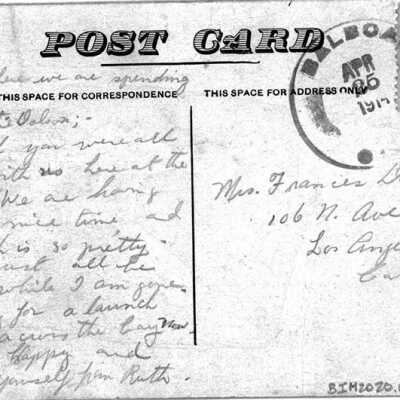 POST CARD
THIS SPACE FOR CORRESPONDENCE
THIS SPACE FOR ADDRESS ONLY
BALBOA
APR
25
191
here we are spending
you were all
with us here at the
We are having
nice time and
is so pretty.
just all be
while I am gone
for a launch
across the bay now
happy and
yourself from Ruth.
Mrs. Frances D
106 N. Ave
Los Ange
Ca
BIM2020.